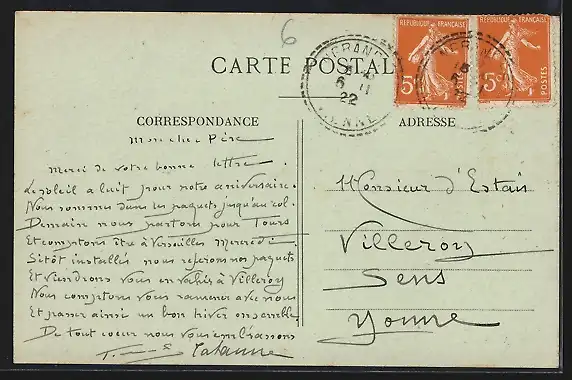 6
CARTE POSTALE
RÉPUBLIQUE FRANÇAISE
5c
POSTES
RÉPUBLIQUE FRANÇAISE
5c
POSTES
6 - 11
22
CORRESPONDANCE
ADRESSE
Mon cher Père
Merci de votre bonne lettre.
Le soleil a luit pour notre anniversaire.
Nous sommes dans les paquets jusqu'au col.
Demain nous partons pour Tours
Et comptons être à Versailles Mercredi.
Sitôt installés nous referons nos paquets
Et viendrons vous envahir à Villeroy
Nous comptons vous ramener avec nous
Et passer ainsi un bon hiver ensemble
De tout coeur nous vous embrassons
Monsieur d'Estais
Villeroy
Sens
Yonne